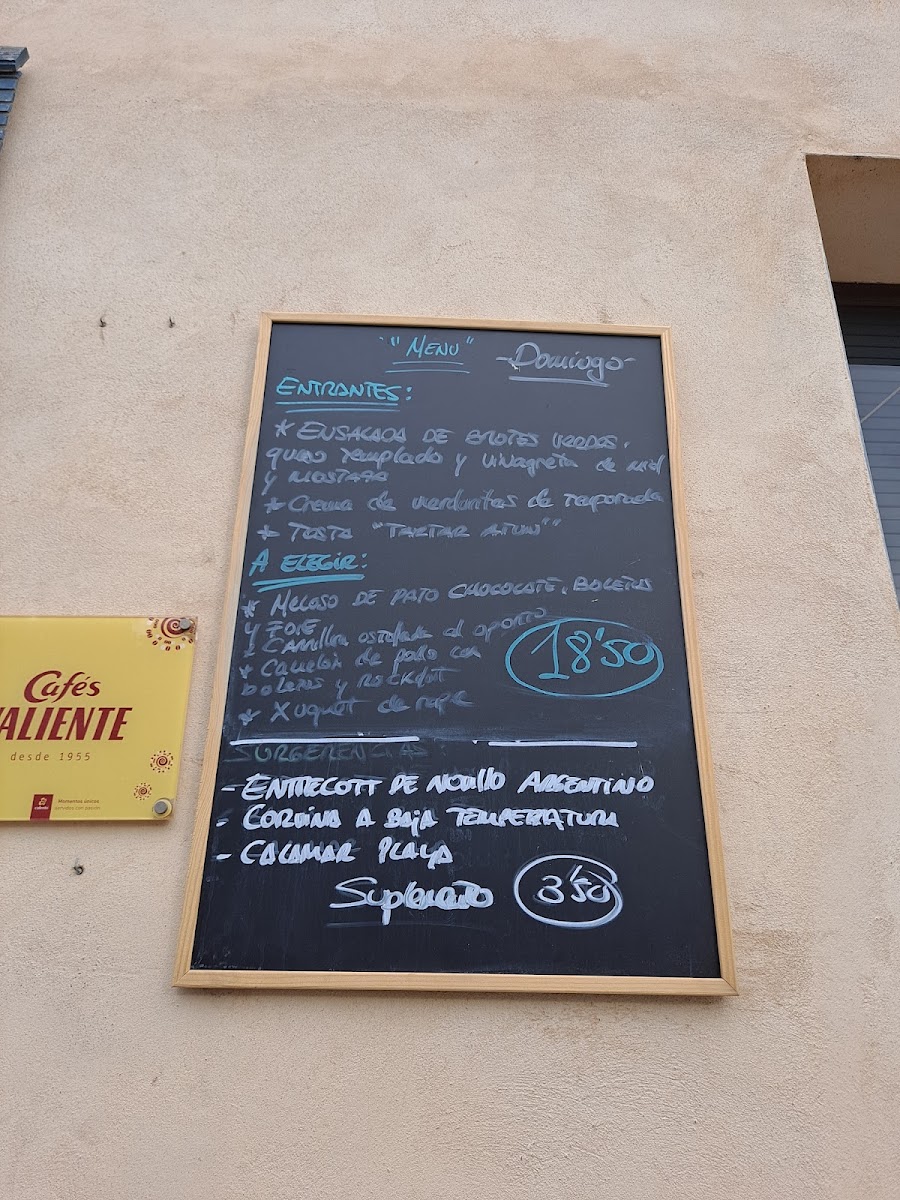 "MENU" -Domingo-
ENTRANTES:
* ENSALADA DE BROTES VERDES,
queso templado y vinagreta de miel
y MOSTAZA
* Crema de verduritas de Temporada
* TOSTA "TARTAR ATUN"
A ELEGIR:
* MELOSO DE PATO CHOCOLATE, BOLETUS
y FOIE
- CARRILLERA estofada al oporto
18'50
* Canelón de pollo con
boletus y ROCKFORT
* XUQUET de rape
SURGERENCIAS:
- ENTRECOTT DE NOVILLO ARGENTINO
- CORVINA A BAJA TEMPERATURA
- CALAMAR PLAYA
Suplemento 3'50
Cafés
VALIENTE
desde 1955
Momentos únicos
servidos con pasión